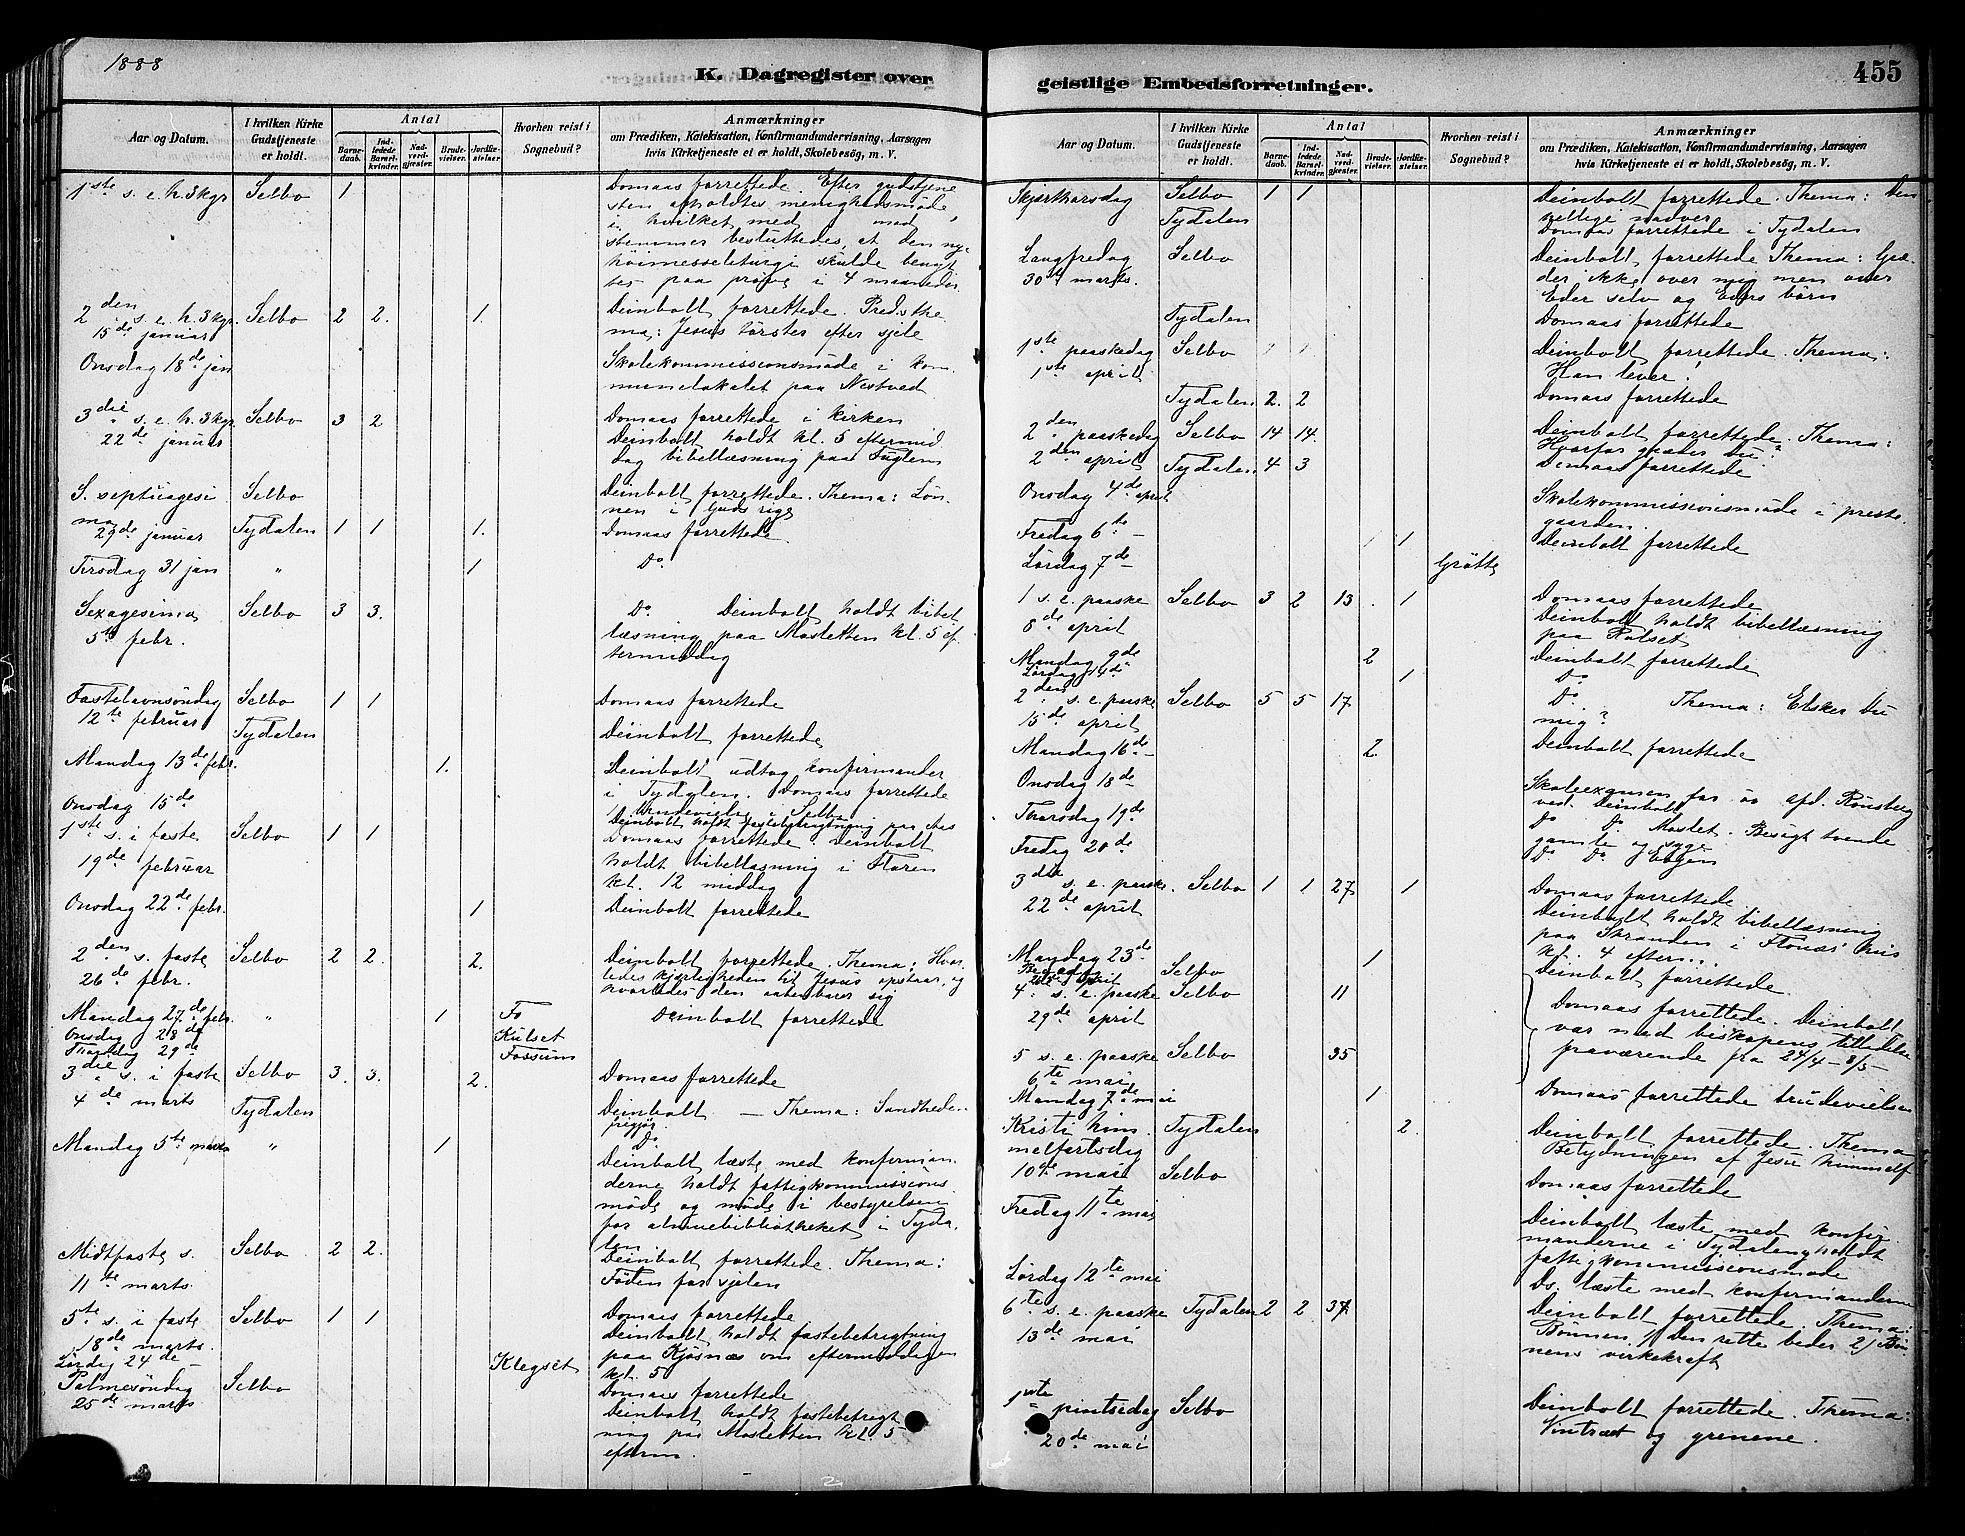 1888
K. Dagregister over
Aar og Datum.
I hvilken Kirke Gudstjeneste er holdt.
Antal
Barnedaab.
Indledede Barselkvinder.
Nadverdgjester.
Brudevielser.
Jordfæstelser
Hvorhen reist i Sognebud?
Anmærkninger
om Prædiken, Katekisation, Konfirmandundervisning, Aarsagen
hvis Kirketjeneste ei er holdt, Skolebesög, m. V.
1ste s. e. h. 3 kgr Selbo 1 Domaas forrettede. Efter gudstjene
sten afholdtes menighedsmøde
i hvilket med mod
stemmer besluttedes, at den nye
høimesseliturgi skulde benyt
tes paa prøve i 4 maaneder.
2den s. e. h. 3 kgr. Selbo 2 2. 1. Deinboll forrettede. Prædikthe
15de januar ma: Jesus tørster efter sjele
Onsdag 18de jan Skolekommissionsmøde i kom
munelokalet paa Nestved
3die s. e. h. 3 kgr. Selbo 3 2 Domaas forrettede i kirken
22de januar Deinboll holdt kl. 5 eftermid
dag bibellæsning paa Fuglem
S. septuagesi Selbo Deinboll forrettede. Thema: Løn
nen i Guds rige
ma 29de januar Tydalen 1 1 1. Domaas forrettede
Tirsdag 31 jan " 1 Do.
Sexagesima Selbo 3 3. Do. Deinboll holdt bibel
5te febr. læsning paa Mosletten kl. 5 ef
termiddag
Fastelavnsöndag Selbo 1 1 Domaas forrettede
12te februar
Tydalen Deinboll forrettede
Mandag 13de febr. 1. Deinboll udtog konfirmander
i Tydalen. Domaas forrettede
Onsdag 15de brudevielse i Selbo
Deinboll holdt fastebetragtning paa Aas
1ste s. i faste Selbo 1 1 Domaas forrettede Deinboll
19de februar holdt bibellæsning i Floren
kl. 12 middag
Onsdag 22de febr. 1 Deinboll forrettede
2den s. faste Selbo 2 2. 2. Deinboll forrettede. Thema: Hvor
26de febr. ledes kjærligheden til Jesus opstaar, og
hvorledes den aabenbarer sig
Mandag 27de febr. " 1 Fo Deinboll forrettede
Onsdag 28de Kulset
Torsdag 29de Fossum
3die s. i faste Selbo 3. 3. 2. Domaas forrettede
4de marts
Tydalen Deinboll — Thema: Sandhede..
frigjør.
Mandag 5te marts " 1 Do.
Deinboll læste med konfirman
derne holdt fattigkommissions
møde og møde i bestyrelsen
for almuebibliotheket i Tyda
len
Midtfaste s. Selbo 2 2. Deinboll forrettede. Thema:
11te marts. Føden for sjelen
5te s. i faste Selbo 1 1 Domaas forrettede
18de marts. Deinboll holdt fastebetragtning
paa Kjøsnæs om eftermiddagen
Lördag 24de Klegset kl. 5
Palmesöndag Selbo Domaas forrettede
25de marts Deinboll holdt fastebetragt
ning paa Mosletten kl. 5
efterm.
geistlige Embedsforretninger.
455
Aar og Datum.
I hvilken Kirke Gudstjeneste er holdt.
Antal
Barnedaab.
Indledede Barselkvinder.
Nadverdgjester.
Brudevielser.
Jordfæstelser.
Hvorhen reist i Sognebud?
Anmærkninger
om Prædiken, Katekisation, Konfirmandundervisning, Aarsagen
hvis Kirketjeneste ei er holdt, Skolebesög, m. V.
Skjærthorsdag Selbo 1 1 Deinboll forrettede. Thema: Den
hellige nadver
Tydalen Domaas forrettede i Tydalen
Langfredag Selbo Deinboll forrettede Thema: Græ
30te marts. der ikke over mig men over
Eder selv og Eders börn
Tydalen Domaas forrettede
1ste paaskedag Selbo 1 1 Deinboll forrettede. Thema:
1ste april Han lever!
Tydalen 2. 2 Domaas forrettede
2den paaskedag Selbo 14 14. Deinboll forrettede. Thema:
Hvorfor græder Du?
2den april Tydalen 4 3 Domaas forrettede
Onsdag 4de april Skolekommissionsmøde i preste
gaarden.
Fredag 6te — 1 1 Deinboll forrettede
Lördag 7de — Grøtte
1 s. e. paaske Selbo 3 2 13 . 1 Domaas forrettede
8de april Deinboll holdt bibellæsning
paa Rolset
Mandag 9de 2 Deinboll forrettede
Lördag 14de 1 Do
2den s. e. paaske Selbo 5 5 17 Do. Thema: Elsker Du
15de april mig?
Mandag 16de — 2. Deinboll forrettede
Onsdag 18de Skoleexamen for afd. Rönsberg
ved Deinboll
Thorsdag 19de Do Do. Moslet. Besøgt tvende
gamle og syge
Fredag 20de Do. Do.
3die s. e. paaske. Selbo 1 1 27 1 Domaas forrettede
22de april Deinboll holdt bibellæsning
paa Stranden i Flonæs' hus
kl. 4 efterm..
Mandag 23de 1 Deinboll forrettede.
Bededag Selbo
4. s. e. paaske Selbo 11 Domaas forrettede. Deinboll
29de april var med biskopens tilladelse
fraværende fra 24/4 – 8/5 –
5 s. e. paaske Selbo 35
6te mai
Mandag 7de mai 1 Domaas forrettede brudevielsen
Kristi him. Tydalen 2. Deinboll forrettede. Thema
melfartsdag Betydningen af Jesu himmelf
10de mai Selbo Domaas forrettede
Fredag 11te mai Deinboll læste med konfir
manderne i Tydalen, holdt
fattigkommissionsmøde
Lørdag 12te mai Do. læste med konfirmanderne
6te s. e. paaske Tydalen 2 2 37 Deinboll forrettede. Thema:
13de mai Bønnen 1/ Den rette beder 2/ Bøn
nens virkekraft
1ste pintsedag Selbo Deinboll forrettede. Thema:
20de mai Vintræet og grenene.